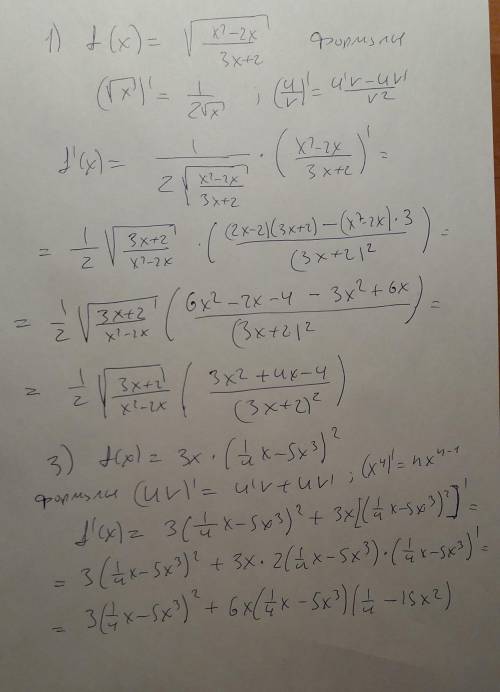 1) f(x) = √((x²-2x)/(3x+2)) формулы
(√x)' = 1/(2√x) ; (u/v)' = (u'v-uv')/v²
f'(x) = 1/(2√((x²-2x)/(3x+2))) · ((x²-2x)/(3x+2))' =
= 1/2 √((3x+2)/(x²-2x)) · (((2x-2)(3x+2) - (x²-2x)·3)/(3x+2)²) =
= 1/2 √((3x+2)/(x²-2x)) ((6x²-2x-4 - 3x²+6x)/(3x+2)²) =
= 1/2 √((3x+2)/(x²-2x)) ((3x²+4x-4)/(3x+2)²)
3) f(x) = 3x·(1/4 x-5x³)²
формулы (uv)' = u'v+uv' ; (xⁿ)' = nxⁿ⁻¹
f'(x) = 3(1/4 x-5x³)² + 3x[(1/4 x-5x³)²]' =
= 3(1/4 x-5x³)² + 3x·2(1/4 x-5x³)·(1/4 x-5x³)' =
= 3(1/4 x-5x³)² + 6x(1/4 x-5x³)(1/4 -15x²)